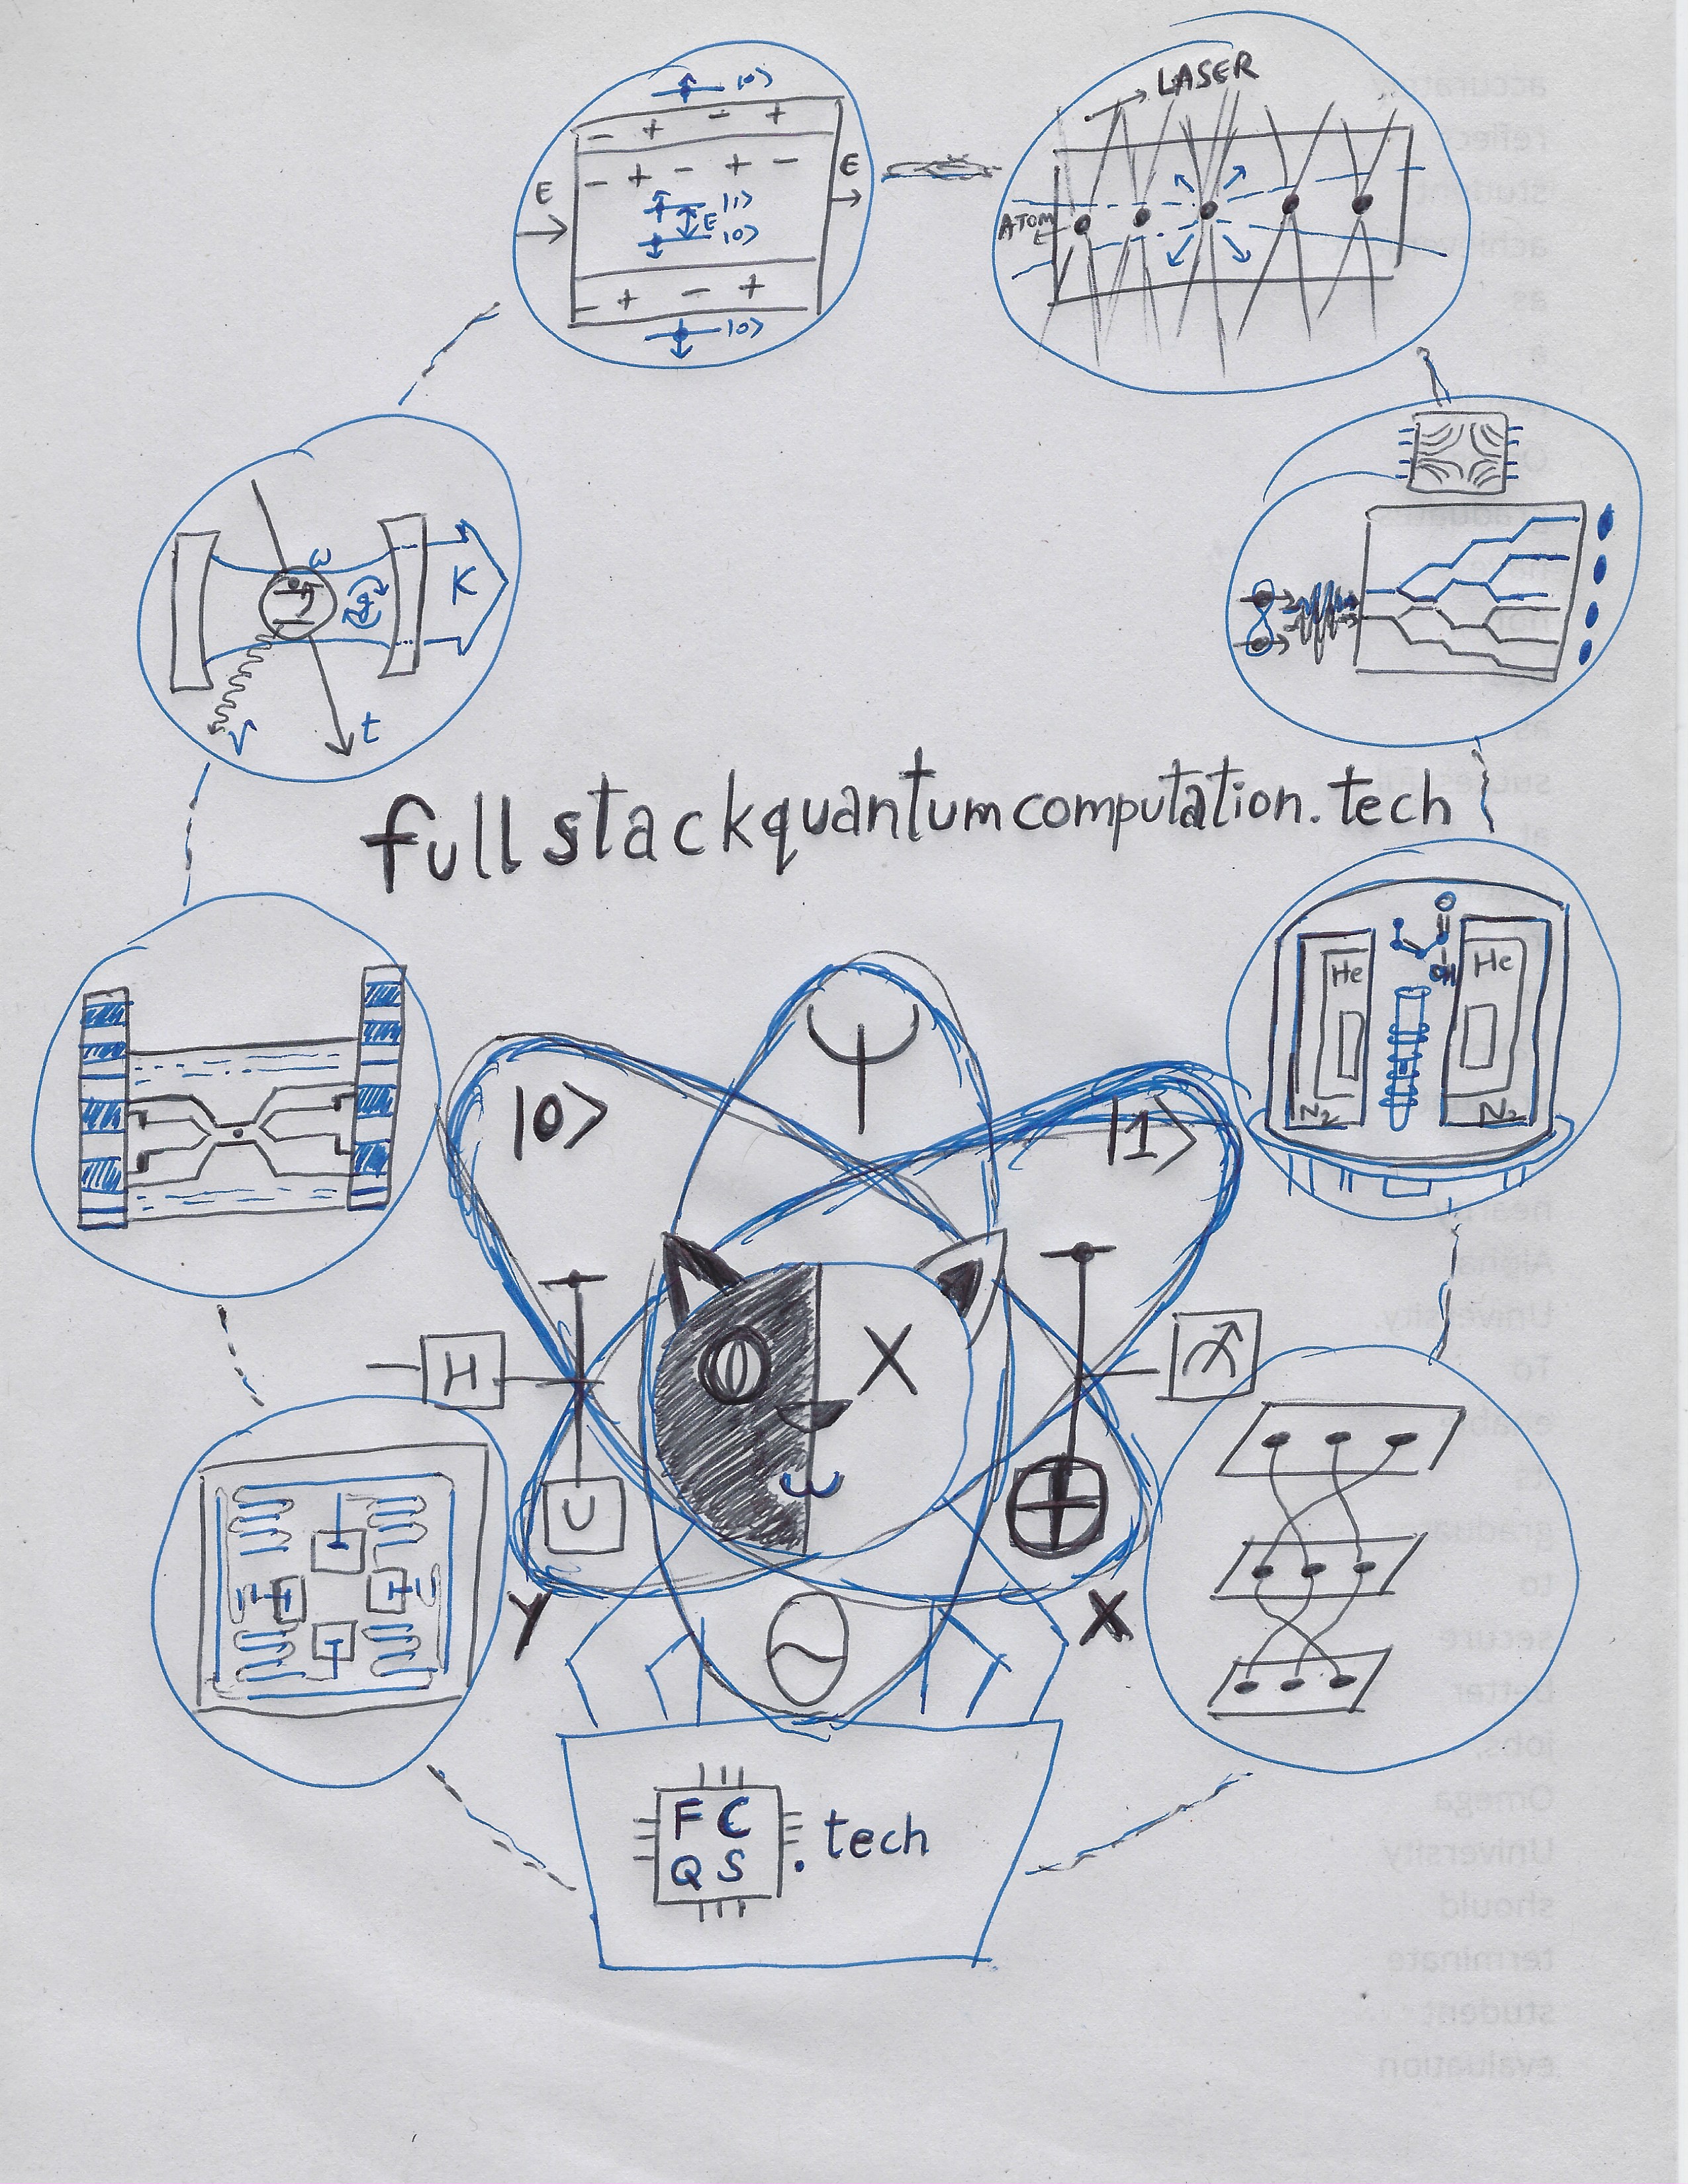 LASER
|0⟩
- + - +
- + - + -
E
E
|1⟩
E
|0⟩
- + - +
|0⟩
ATOM
ω
g
K
t
fullstackquantumcomputation.tech
He
He
OH
N₂
N₂
|0⟩
|1⟩
H
X
U
Y
X
F C
Q S
.tech
accurate
reflec
student
achiev
as
a
not
as
successful
nearly
Aligns
University.
To
enab
its
gradu
to
secure
better
jobs,
Omega
University
should
terminate
student
evaluation